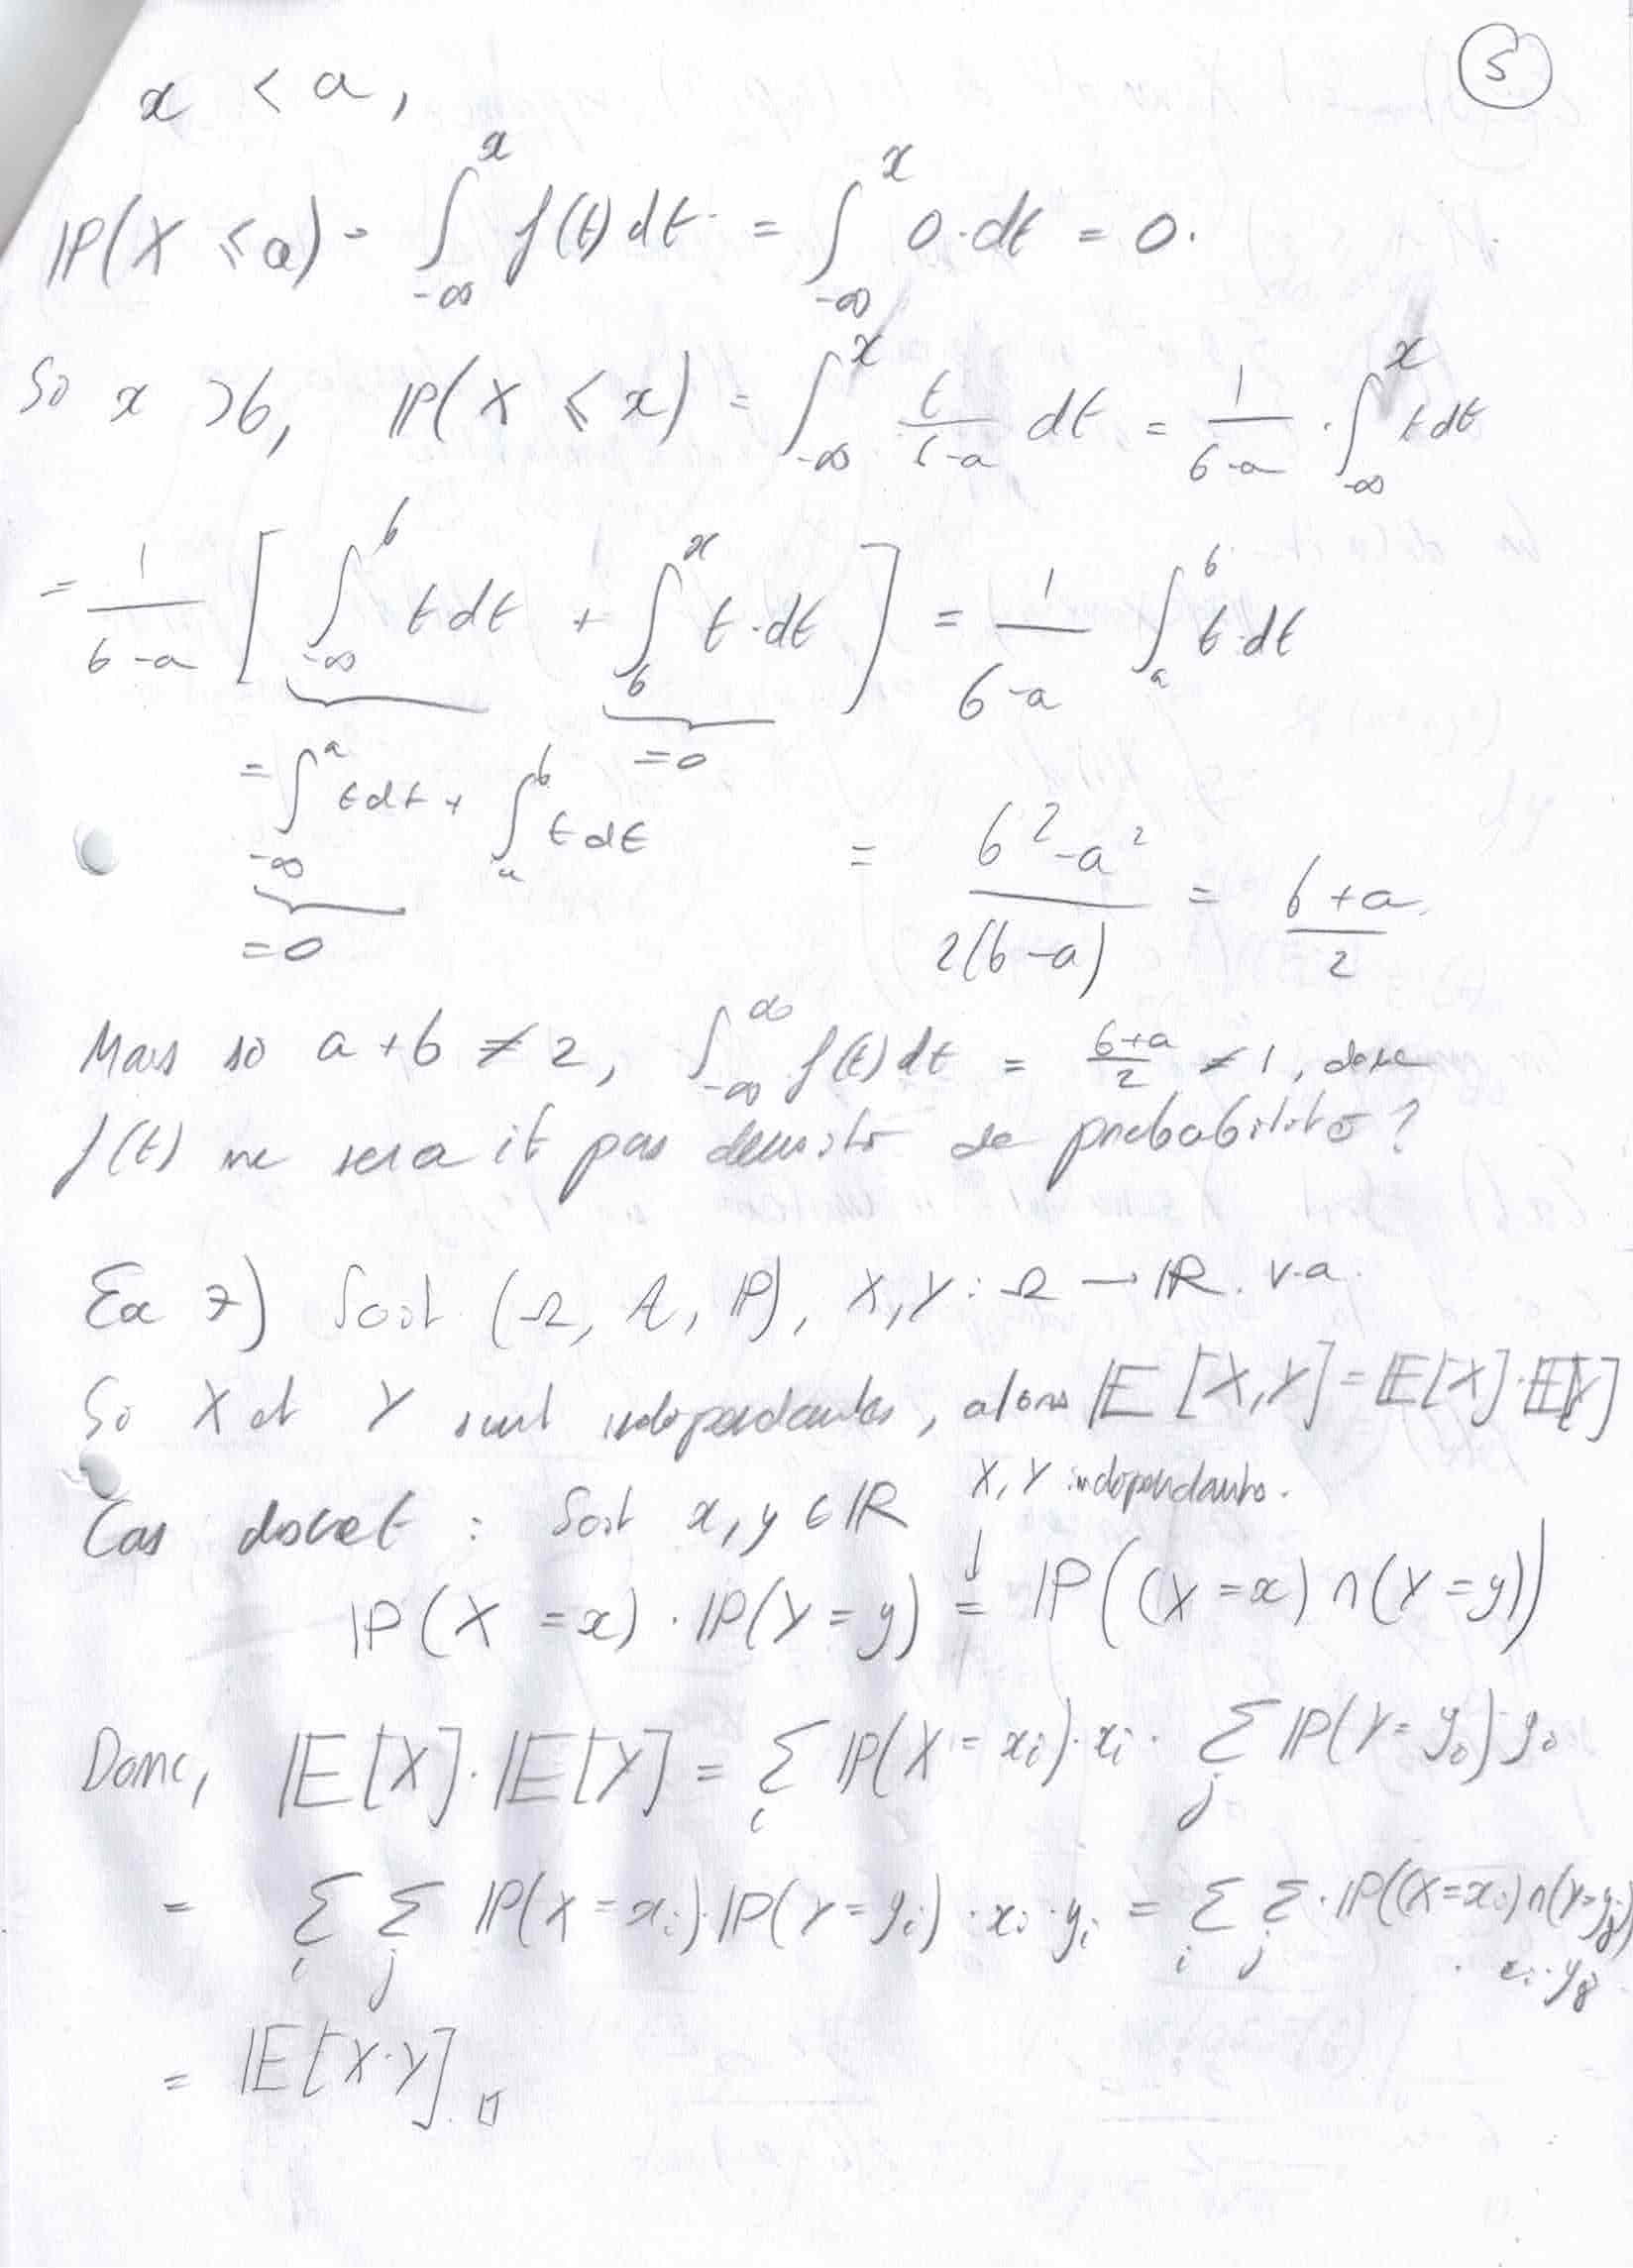 5
x < a,
P(X ⩽ a) = ∫_{-∞}^{x} f(t) dt = ∫_{-∞}^{x} 0·dt = 0.
Si x > b, P(X ⩽ x) = ∫_{-∞}^{x} t/(b-a) dt = 1/(b-a) · ∫_{-∞}^{x} t dt
= 1/(b-a) [ ∫_{-∞}^{b} t dt + ∫_{b}^{x} t·dt ] = 1/(b-a) ∫_{a}^{b} t·dt
= ∫_{-∞}^{a} t dt + ∫_{a}^{b} t dt
= 0
= 0
= (b²-a²)/(2(b-a)) = (b+a)/2
Mais si a+b ≠ 2, ∫_{-∞}^{∞} f(t) dt = (b+a)/2 ≠ 1, donc
f(t) ne serait pas densité de probabilité ?
Ex 7) Soit (Ω, A, P), X, Y : Ω → R. v.a.
Si X et Y sont indépendantes, alors E[X,Y] = E[X]·E[Y]
Cas discret : Soit x, y ∈ R
X, Y indépendantes.
↓
P(X = x) · P(Y = y) = P((X = x) ∩ (Y = y))
Donc, E[X]·E[Y] = Σ_i P(X = x_i)·x_i · Σ_j P(Y = y_j) y_j
= Σ_i Σ_j P(X = x_i)·P(Y = y_i) · x_i · y_i = Σ_i Σ_j · P((X = x_i) ∩ (Y = y_j))
· x_i · y_j
= E[X·Y]. □